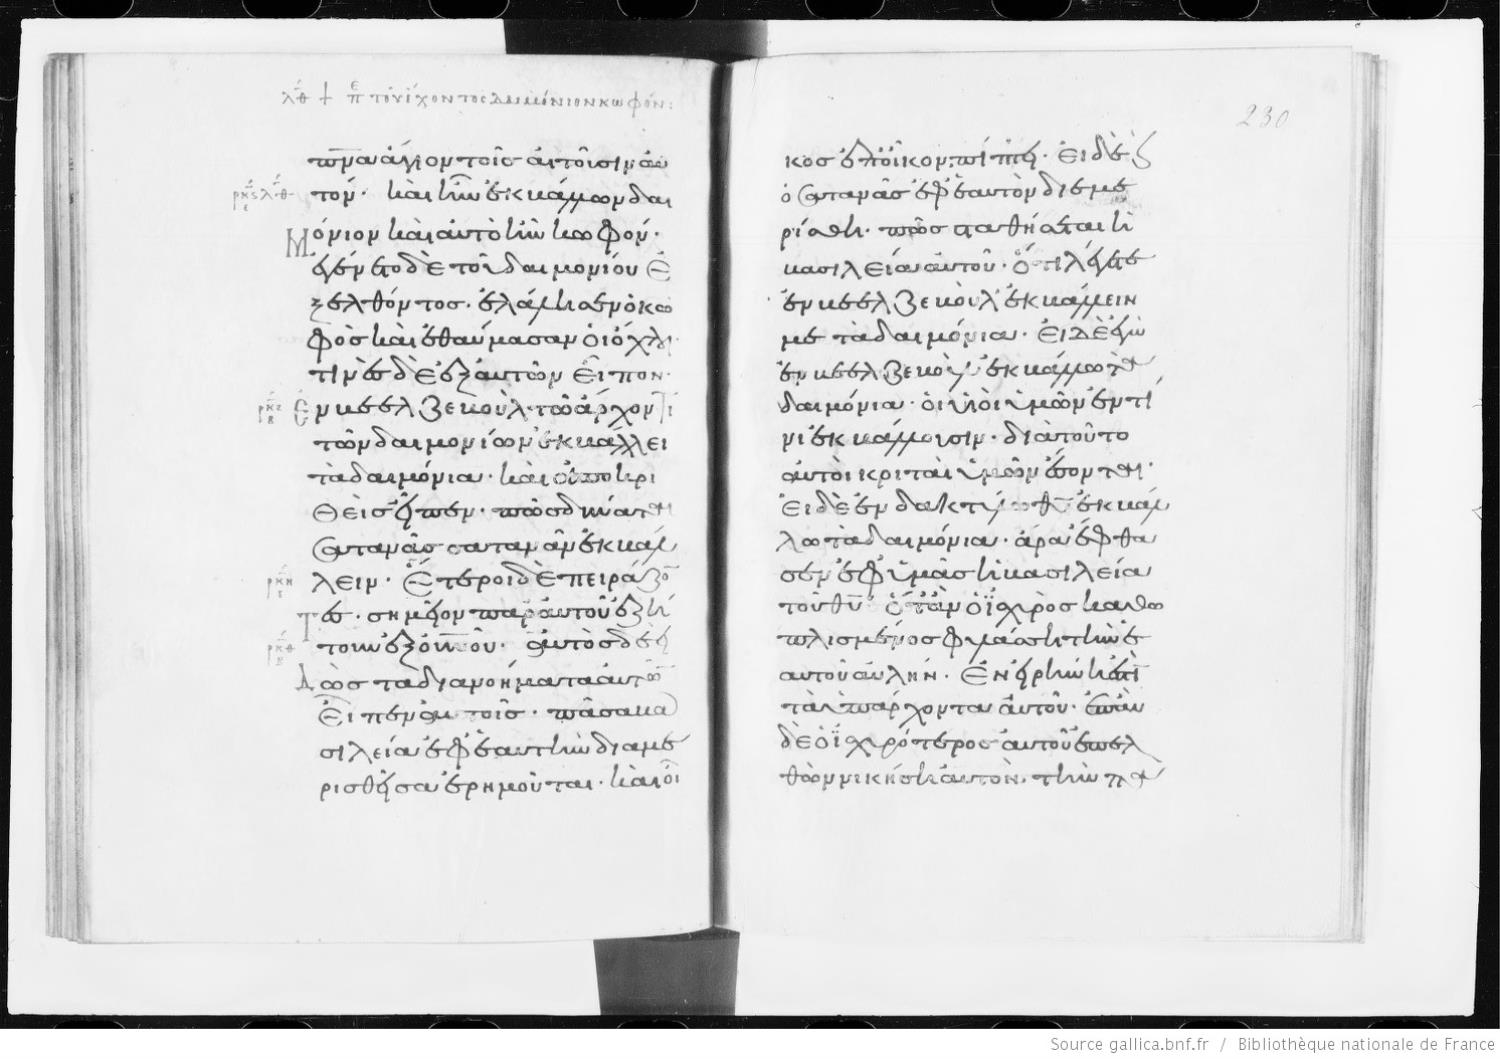 λθ περὶ τοῦ ἔχοντος δαιμόνιον κωφόν:
πνα ἅγιον τοῖς αἰτοῦσιν αὐ
τόν· καὶ ἦν ἐκβάλλων δαι
μόνιον καὶ αὐτὸ ἦν κωφόν·
ἐγένετο δὲ τοῦ δαιμονίου ἐ
ξελθόντος· ἐλάλησεν ὁ κω
φὸς καὶ ἐθαύμασαν οἱ ὄχλοι·
τινὲς δὲ ἐξ αὐτῶν εἶπον·
ἐν βεελζεβοὺλ τῶ ἄρχοντι
τῶν δαιμονίων ἐκβάλλει
τὰ δαιμόνια· καὶ ἀποκρι
θεὶς εἶπεν· πῶς δύναται
σατανᾶς σατανᾶν ἐκβάλ
λειν· ἕτεροι δὲ πειράζον
τες· σημεῖον παρ αὐτοῦ ἐζή
τουν ἐξ οὐνου· αὐτὸς δὲ εἰ
δὼς τὰ διανοήματα αὐτῶν
εἶπεν αὐτοῖς· πᾶσα βα
σιλεία ἐφ ἑαυτὴν διαμε
ρισθεῖσα ἐρημοῦται· καὶ οἶ
230
κος ἐπ οἶκον πίπτει· εἰ δὲ καὶ
ὁ σατανᾶς ἐφ ἑαυτὸν διεμε
ρίσθη· πῶς σταθήσεται ἡ
βασιλεία αὐτοῦ· ὅτι λέγετε
ἐν βεελζεβοὺλ ἐκβάλλειν
με τὰ δαιμόνια· εἰ δὲ ἐγὼ
ἐν βεελζεβοὺλ ἐκβάλλω τὰ
δαιμόνια· οἱ υἱοὶ ὑμῶν ἐν τί
νι ἐκβάλλουσιν· διὰ τοῦτο
αὐτοὶ κριταὶ ὑμῶν ἔσονται·
εἰ δὲ ἐν δακτύλω θυ ἐκβάλ
λω τὰ δαιμόνια· ἄρα ἔφθα
σεν ἐφ ὑμᾶς ἡ βασιλεία
τοῦ θυ· ὅταν ὁ ἰσχυρὸς καθω
πλισμένος φυλάσση τὴν ἑ
αυτοῦ αὐλήν· ἐν εἰρήνη ἐστὶ
τὰ ὑπάρχοντα αὐτοῦ· ἐπὰν
δὲ ὁ ἰσχυρότερος αὐτοῦ ἐπελ
θὼν νικήση αὐτὸν· τὴν πα
Source gallica.bnf.fr / Bibliothèque nationale de France